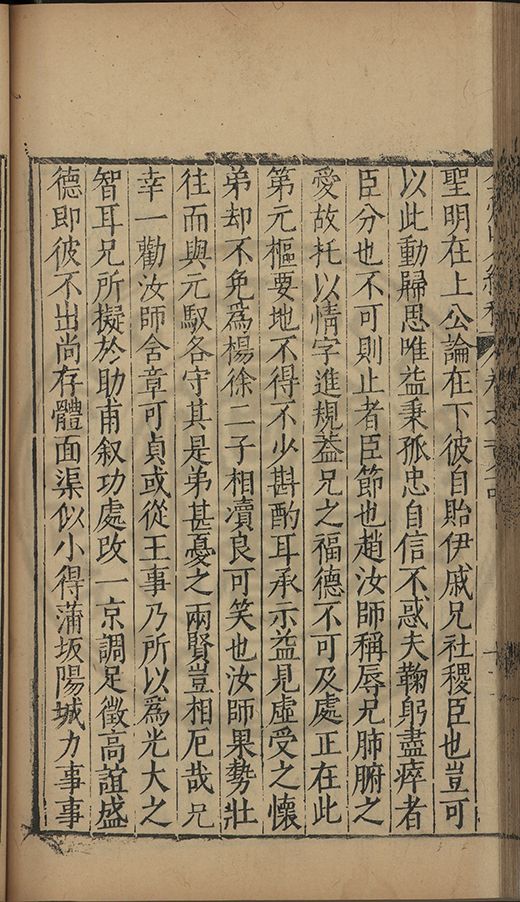 聖明在上公論在下彼自貽伊戚兄社稷臣也豈可
以此動歸思唯益秉孤忠自信不惑夫鞠躬盡瘁者
臣分也不可則止者臣節也趙汝師稱辱兄肺腑之
愛故托以情字進規益兄之福德不可及處正在此
第元樞要地不得不少斟酌耳承示益見虛受之懷
弟却不免爲楊徐二子相瀆良可笑也汝師果勢壯
往而與元馭各守其是弟甚憂之兩賢豈相厄哉兄
幸一勸汝師舍章可貞或從王事乃所以爲光大之
智耳兄所擬於助甫叙功處改一京調足徵高誼盛
德即彼不出尚存體面渠似小得蒲坂陽城力事事